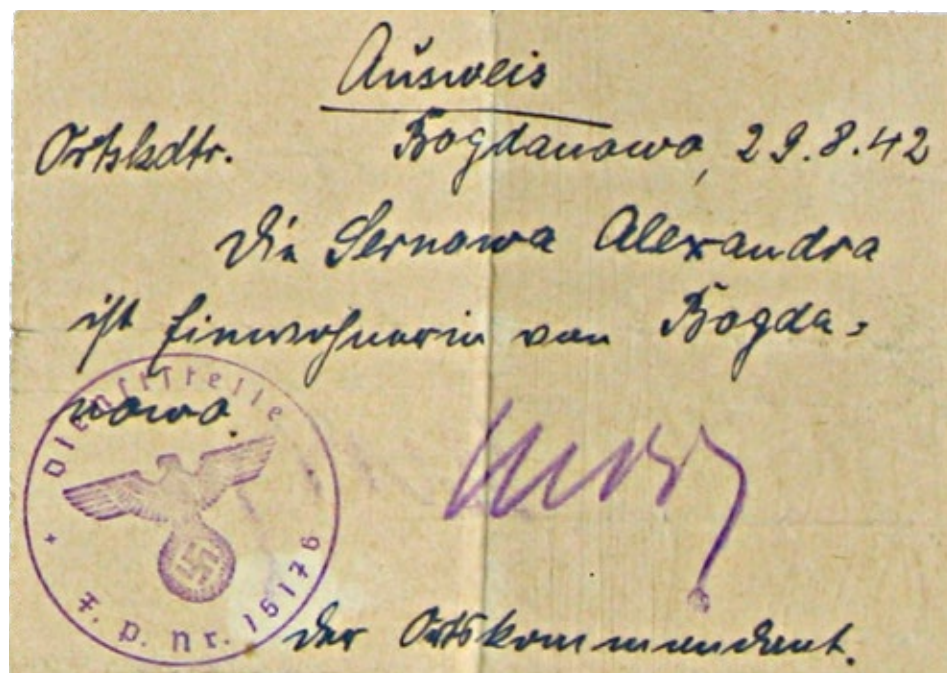 Ausweis
Ortskdtr. Bogdanowo, 29.8.42
Die Sernowa Alexandra
ist Einwohnerin von Bogda-
nowo.
Dienststelle
F. P. Nr. 15176
Der Ortskommandant.